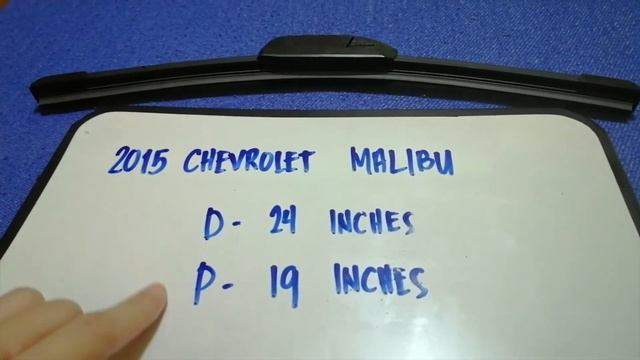 2015 CHEVROLET MALIBU
D- 24 INCHES
P- 19 INCHES